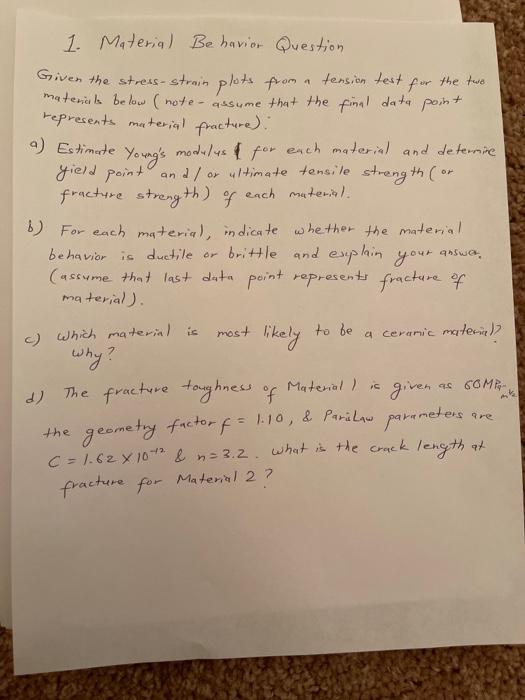 1. Material Behavior Question
Given the stress-strain plots from a tension test for the two
materials below (note - assume that the final data point
represents material fracture):
a) Estimate Young's modulus for each material and determine
yield point and/or ultimate tensile strength (or
fracture strength) of each material.
b) For each material, indicate whether the material
behavior is ductile or brittle and explain your answer.
(assume that last data point represents fracture of
material).
c) Which material is most likely to be a ceramic material?
Why?
d) The fracture toughness of Material 1 is given as 60MPa-m^1/2
the geometry factor f = 1.10, & Paris Law parameters are
C = 1.62 X 10^-12 & n = 3.2. What is the crack length at
fracture for Material 2?